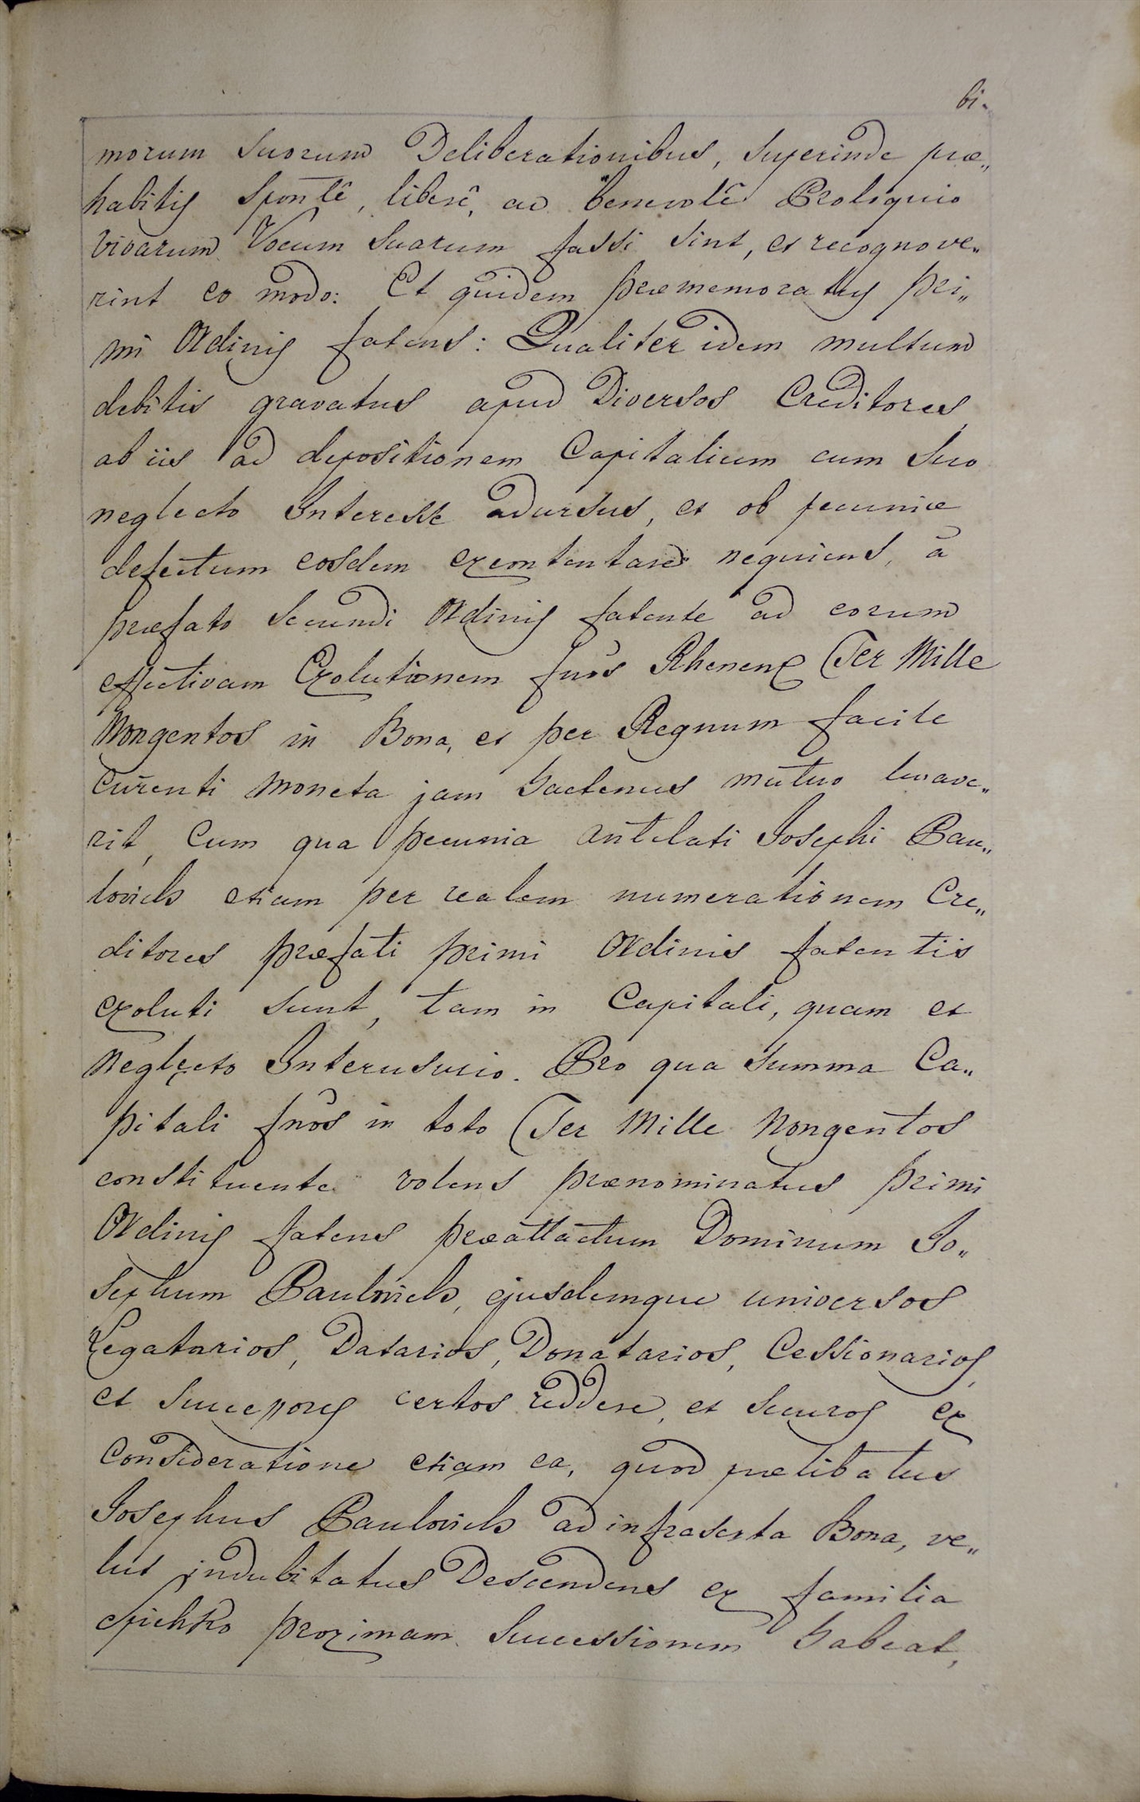 bi.
morum Suorum Deliberationibus, Superinde præ„
habitis Spontê, liberê, ac benevolê Proloquio
vivarum Vocum Suarum fassi sint, et recognove„
rint eo modo: Et quidem præmemoratus pri„
mi Ordinis fatens: Qualiter idem multum
debitis gravatus apud Diversos Creditores
ab iis ad depositionem Capitalium cum Suo
neglecto Interesse adursus, et ob pecuniæ
defectum eosdem excontentare nequiens, à
præfato Secundi Ordinis fatente ad eorum
effectivam Exolutionem fnõs Rhenenses Ter Mille
Nongentos in Bona, et per Regnum facile
Currenti Moneta jam hactenus mutuo levave„
rit, Cum qua pecunia antelati Josephi Pau„
lovich etiam per realem numerationem Cre„
ditores præfati primi Ordinis fatentis
exoluti sunt, tam in Capitali, quam et
Neglecto Interusurio. Pro qua Summa Ca„
pitali fnõs in toto Ter Mille Nongentos
constituente volens prænominatus primi
Ordinis fatens præattactum Dominum Jo„
sephum Paulovich, ejusdemque universos
Legatarios, Datarios, Donatarios, Cessionarios,
et Successores certos reddere, et Securos ex
Consideratione etiam ea, quod prælibatus
Josephus Paulovich ad infraserta Bona, ve„
lut indubitatus Descendens ex familia
proximam Successionem habeat,